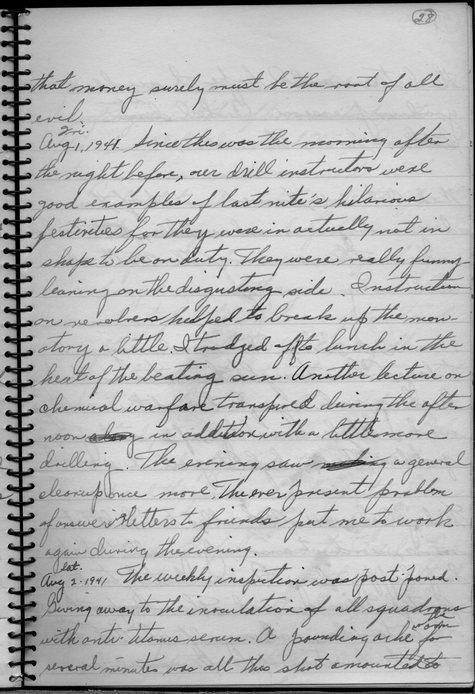 28
that money surely must be the root of all
evil.
Fri.
Aug 1, 1941. Since this was the morning after
the night before, our drill instructors were
good examples of last nite's hilarious
festivities for they were in actually not in
shape to be on duty. They were really funny
leaning on the disgusting side. Instruction
on revolvers helped to break up the mon-
otony a little. I trudged off to lunch in the
heat of the beating sun. Another lecture on
chemical warfare transpired during the after
noon along in addition with a little more
drilling. The evening saw a general
cleanup once more. The ever present problem
of answer letters to friends put me to work
again during the evening.
Sat.
Aug 2. 1941 The weekly inspection was post-poned.
Giving away to the inoculation of all squadrons
with anti-titanus serum. A pounding ache for
several minutes was all this shot amounted to